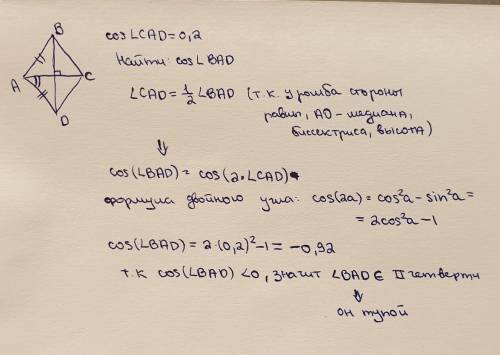 B
A
C
D
cos∠CAD=0,2
Найти: cos∠BAD
∠CAD=½∠BAD (т.к. у ромба стороны
равны, AO - медиана,
биссектриса, высота)
⇓
cos(∠BAD)= cos(2·∠CAD)
формула двойного угла: cos(2a)= cos²a - sin²a =
= 2cos²a - 1
cos(∠BAD)= 2·(0,2)²-1= -0,92
т.к cos(∠BAD) <0, значит ∠BAD ∈ II четверти
⇓
он тупой